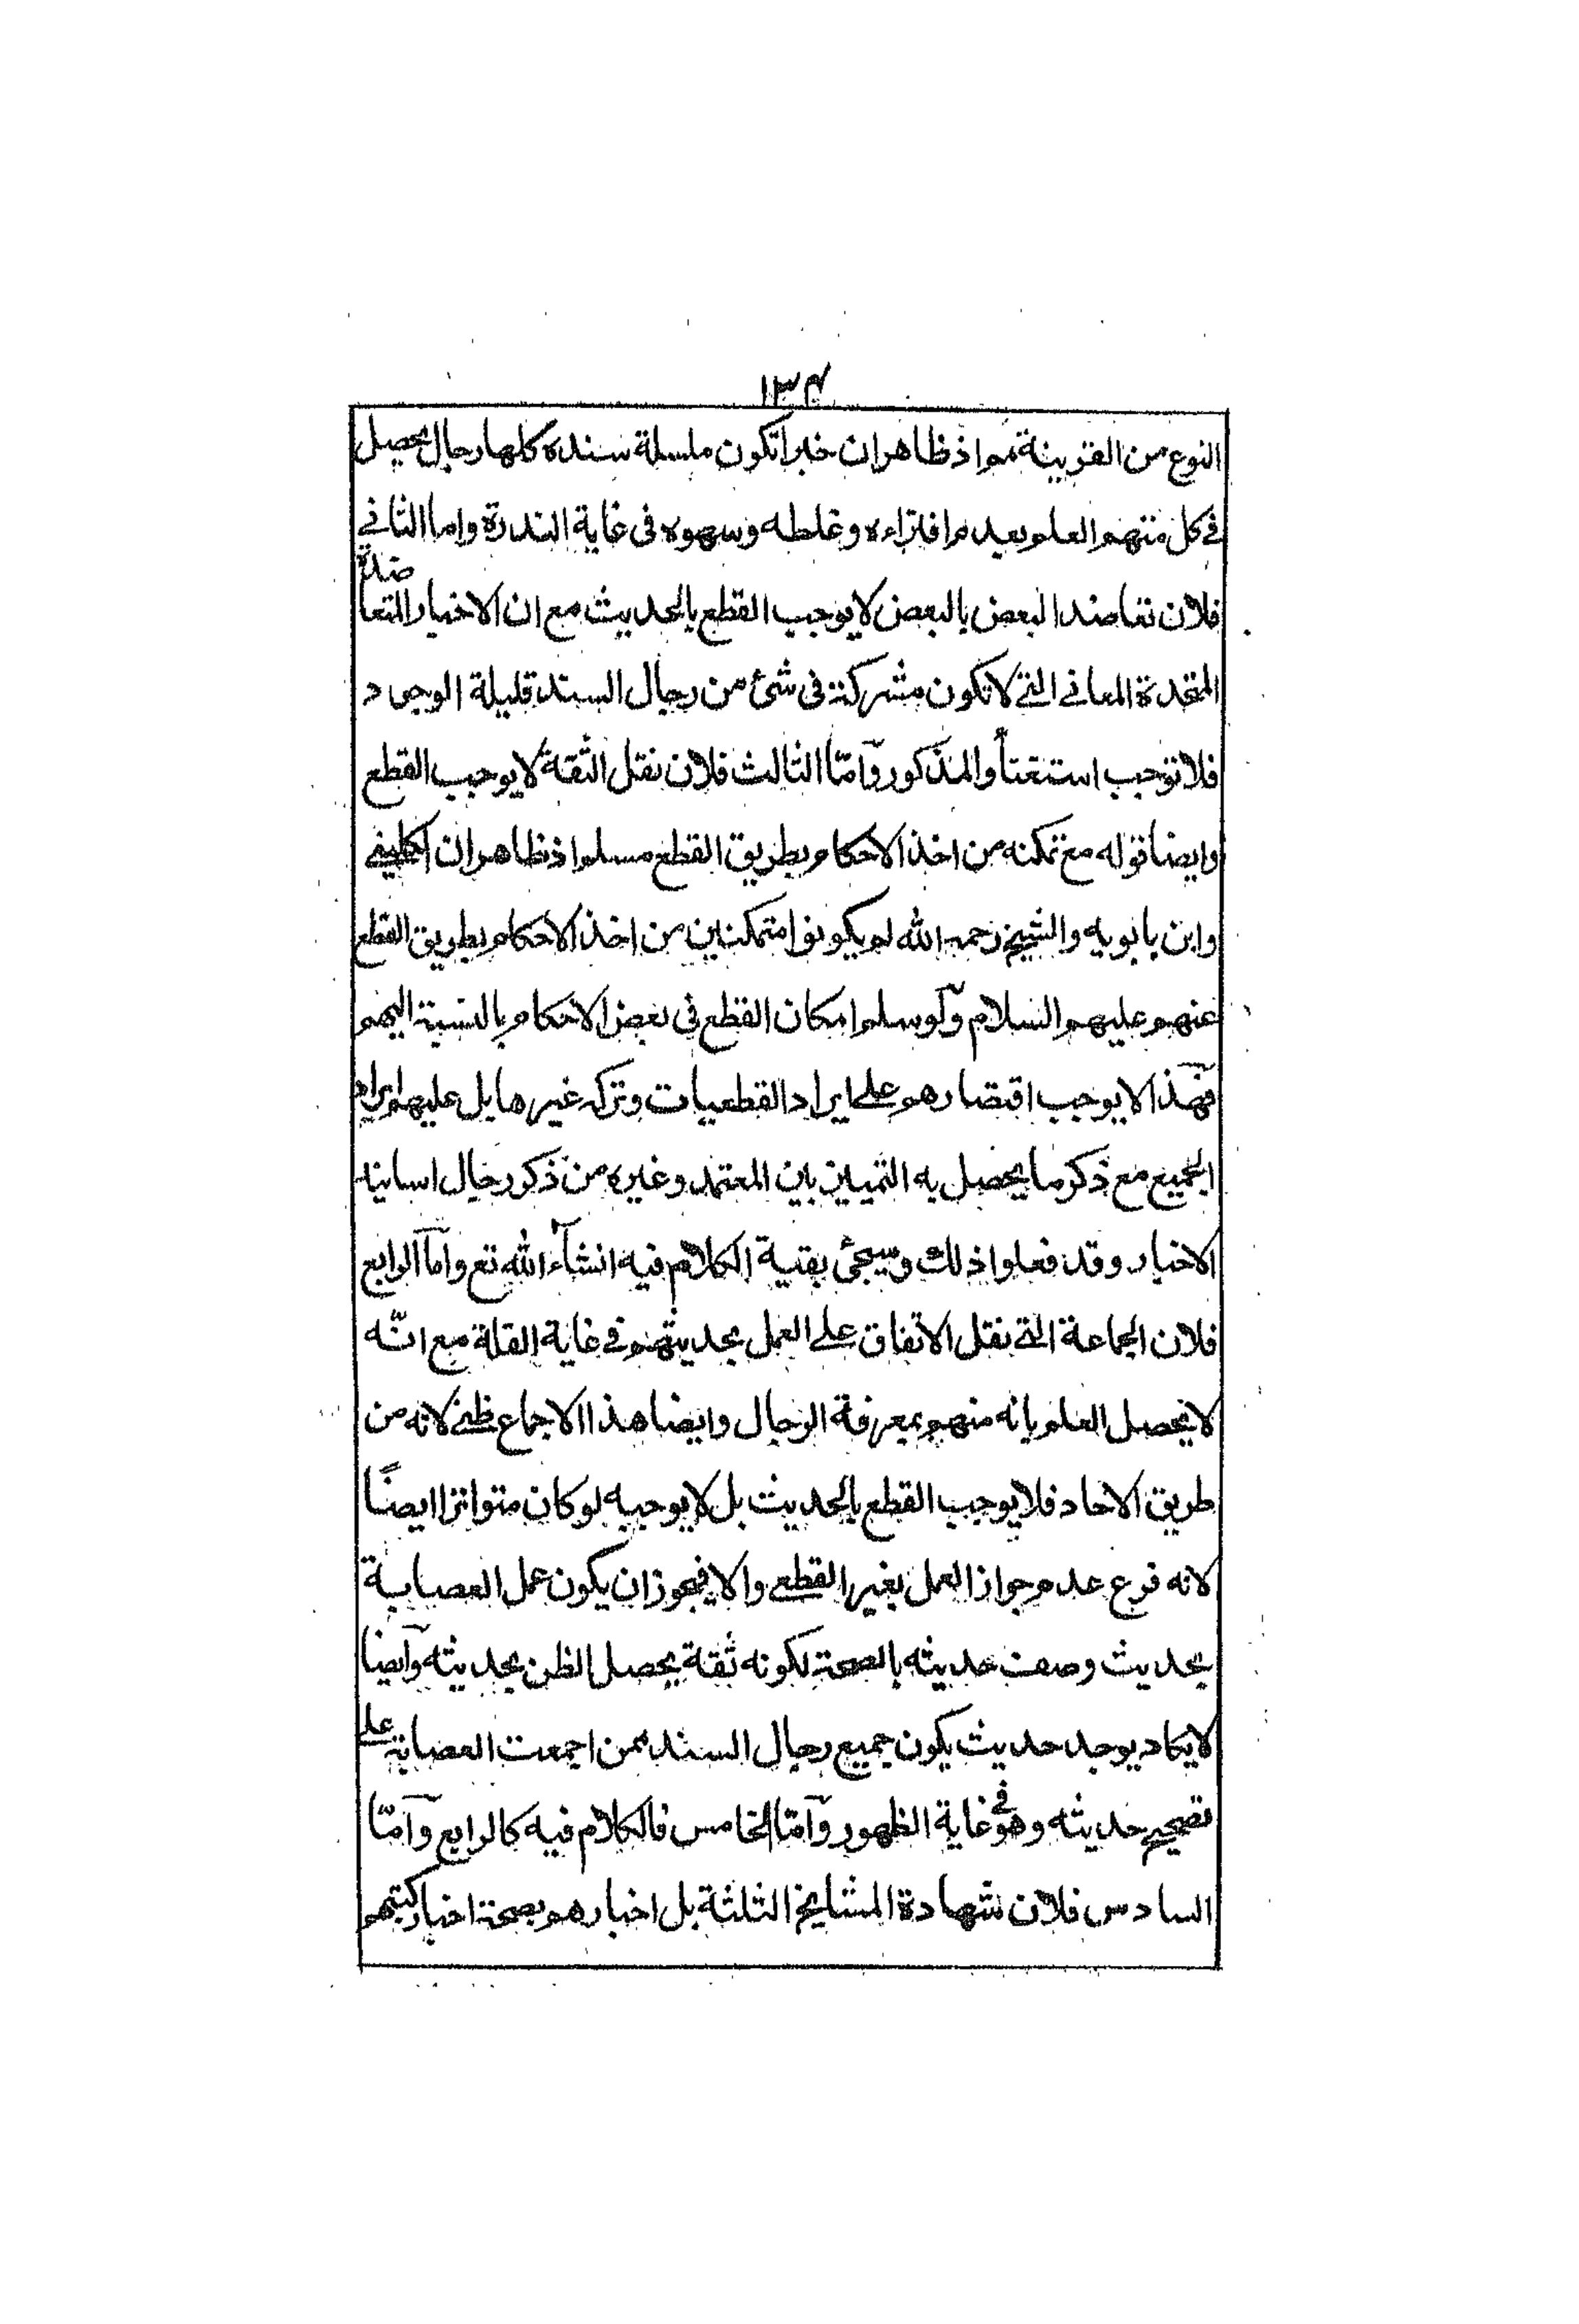 ١٣٤
النوع من القرينة مم اذ ظاهر ان خبرا تكون سلسلة سنده كلها رجال يحصل
في كل منهم العلم بعدم افتراءه وغلطه وسهوه فى غاية الندرة واما الثاني
فلان تعاضد البعض بالبعض لا يوجب القطع بالحديث مع ان الاخبار المتعاضدة
المتحدة المعاني التي لا تكون مشركة فى شئ من رجال السند قليلة الوجود
فلا توجب استغناً والمذكور وامّا الثالث فلان نقل الثقة لا يوجب القطع
وايضا قوله مع تمكنه من اخذ الاحكام بطريق القطع مسلم اذ ظاهر ان الكليني
وابن بابويه والشيخ رحمه الله لم يكونوا متمكنين من اخذ الاحكام بطريق القطع
عنهم عليهم السلام ولو سلم امكان القطع فى بعض الاحكام بالنسبة اليهم
فهذا لا يوجب اقتصارهم على ايراد القطعيات وترك غيرها بل عليهم ايراد
الجميع مع ذكر ما يحصل به التميز بين المعتمد وغيره من ذكر رجال اسانيد
الاخبار وقد فعلوا ذلك وسيجئ بقية الكلام فيه انشآء الله تع واما الرابع
فلان الجماعة التي نقل الاتفاق على العمل بحديثهم في غاية القلة مع انّه
لا يحصل العلم بانه منهم بمعرفة الرجال وايضا هذا الاجماع ظني لانه من
طريق الاحاد فلا يوجب القطع بالحديث بل لا يوجبه لو كان متواترا ايضًا
لانه فرع عدم جواز العمل بغير القطعي والا فيجوز ان يكون عمل العصابة
بحديث وصف حديثه بالصحة لكونه ثقة يحصل الظن بحديثه وايضا
لا يكاد يوجد حديث يكون جميع رجال السند ممن اجمعت العصابة على
تصحيح حديثه وهو في غاية الظهور وامّا الخامس فالكلام فيه كالرابع وامّا
السادس فلان شهادة المشايخ الثلثة بل اخبارهم بصحة اخبار كتبهم